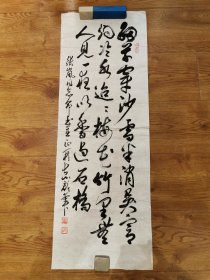 細草穿沙雪半消吴宫
烟冷水迢〻梅花竹里無
人見一夜吹香過石橋
同志